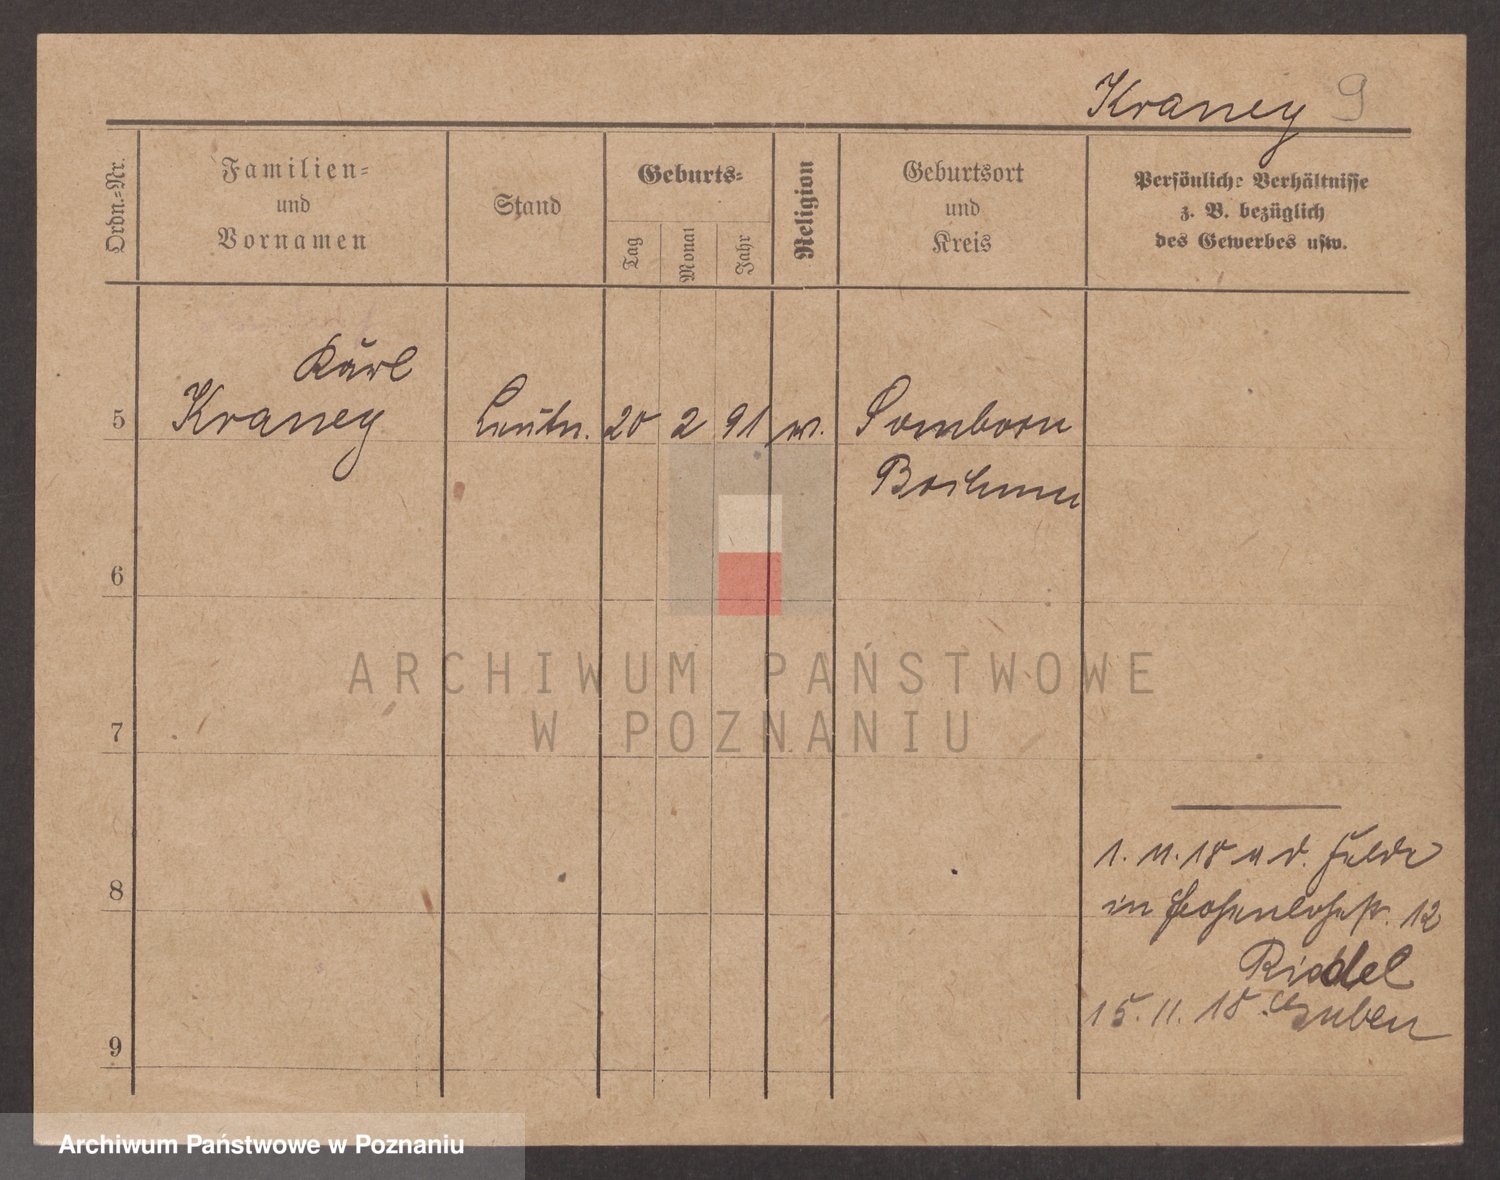 Kraney 9
Ordn.-Nr.
Familien-
und
Vornamen
Stand
Geburts-
Tag
Monat
Jahr
Religion
Geburtsort
und
Kreis
Persönliche Verhältnisse
z. B. bezüglich
des Gewerbes usw.
Karl
5 Kraney Leutn. 20 2 91 Somborn
Bochum
6
ARCHIWUM PAŃSTWOWE
W POZNANIU
7
1. 11. 18 a. d. Felde
8
in Hohenlohestr. 12
Riedel
15. 11. 18 Guben
9
Archiwum Państwowe w Poznaniu